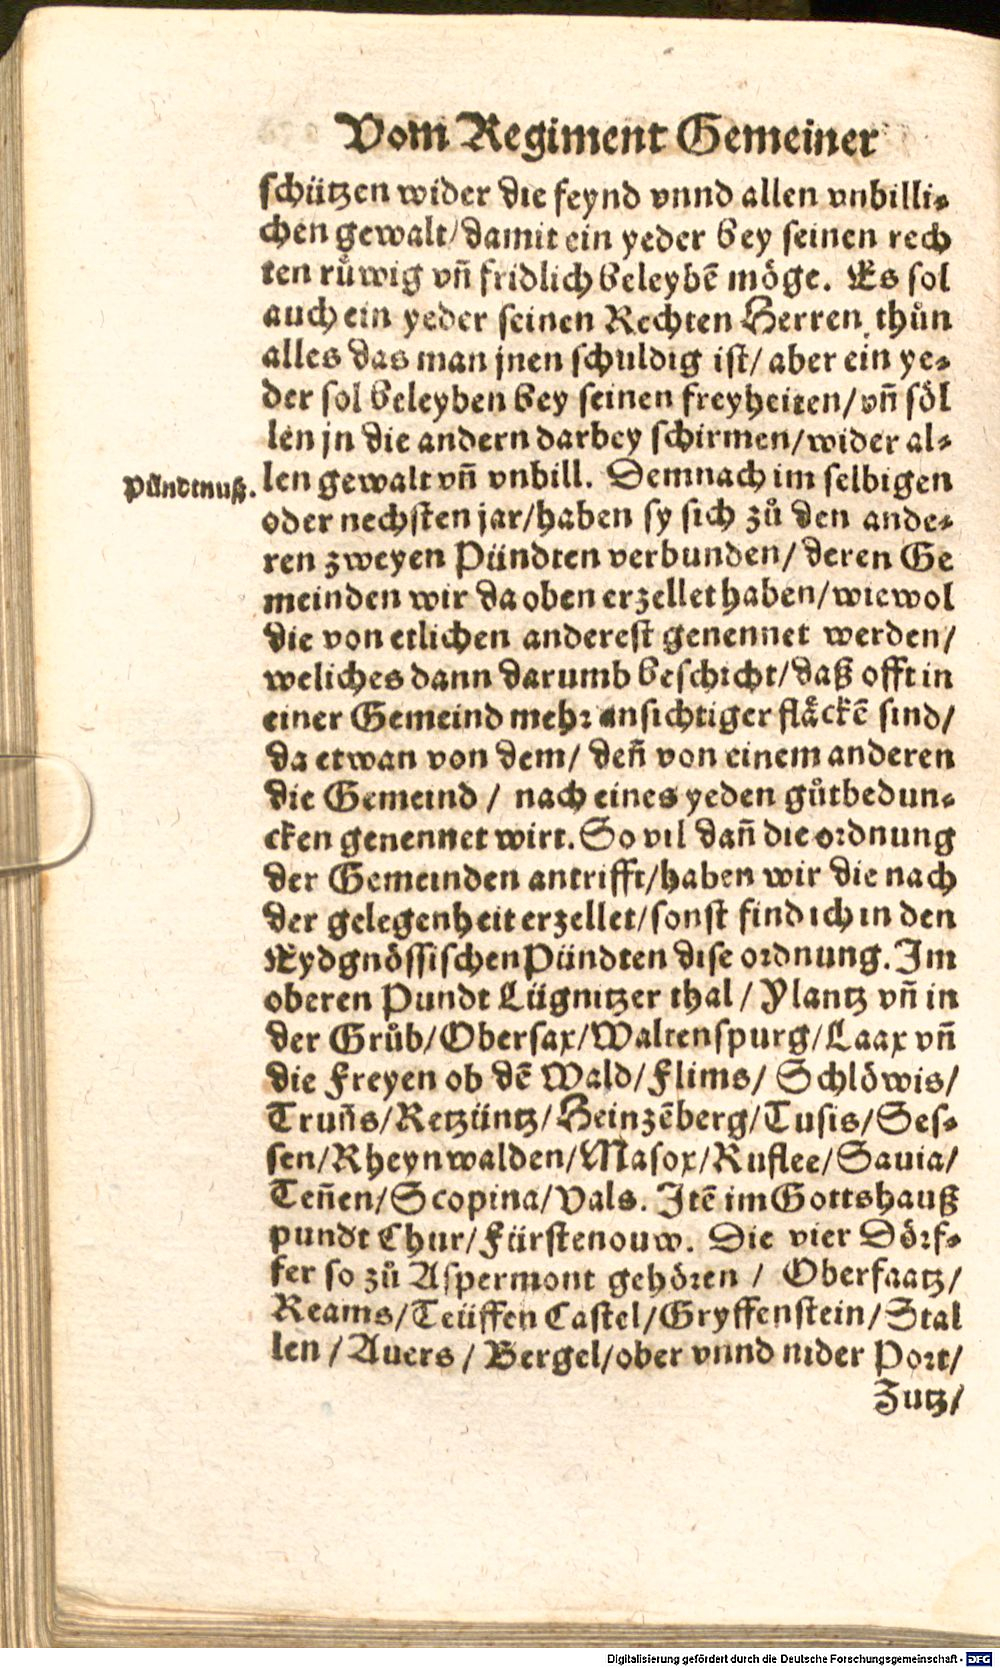 Vom Regiment Gemeiner
schützen wider die feynd vnnd allen vnbilli⸗
chen gewalt/ damit ein yeder bey seinen rech
ten růwig vñ fridlich beleybē möge. Es sol
auch ein yeder seinen Rechten Herren thůn
alles das man jnen schuldig ist/ aber ein ye⸗
der sol beleyben bey seinen freyheiten/ vñ söl
len jn die andern darbey schirmen/ wider al⸗
Pündtnuß.
len gewalt vñ vnbill. Demnach im selbigen
oder nechsten jar/ haben sy sich zů den ande⸗
ren zweyen Pündten verbunden/ deren Ge
meinden wir da oben erzellet haben/ wiewol
die von etlichen anderest genennet werden/
weliches dann darumb beschicht/ daß offt in
einer Gemeind mehr ansichtiger fläckē sind/
da etwan von dem/ deñ von einem anderen
die Gemeind / nach eines yeden gůtbedun⸗
cken genennet wirt. So vil dañ die ordnung
der Gemeinden antrifft/ haben wir die nach
der gelegenheit erzellet/ sonst find ich in den
Eydgnössischen Pündten dise ordnung. Im
oberen Pundt Lügnitzer thal / Ylantz vñ in
der Grůb/ Obersax/ Waltenspurg/ Laax vñ
die Freyen ob dē Wald/ Flims/ Schlöwis/
Truñs/ Retzüntz/ Heinzēberg/ Tusis/ Ses⸗
sen/ Rheynwalden/ Masox/ Ruflee/ Sauia/
Teñen/ Scopina/ Vals. Jtē im Gottshauß
pundt Chur/ Fürstenouw. Die vier Dörf⸗
fer so zů Aspermont gehören / Oberfaatz/
Reams/ Teüffen Castel/ Gryffenstein/ Stal
len / Auers / Bergel/ ober vnnd nider Port/
Zutz/
Digitalisierung gefördert durch die Deutsche Forschungsgemeinschaft - DFG